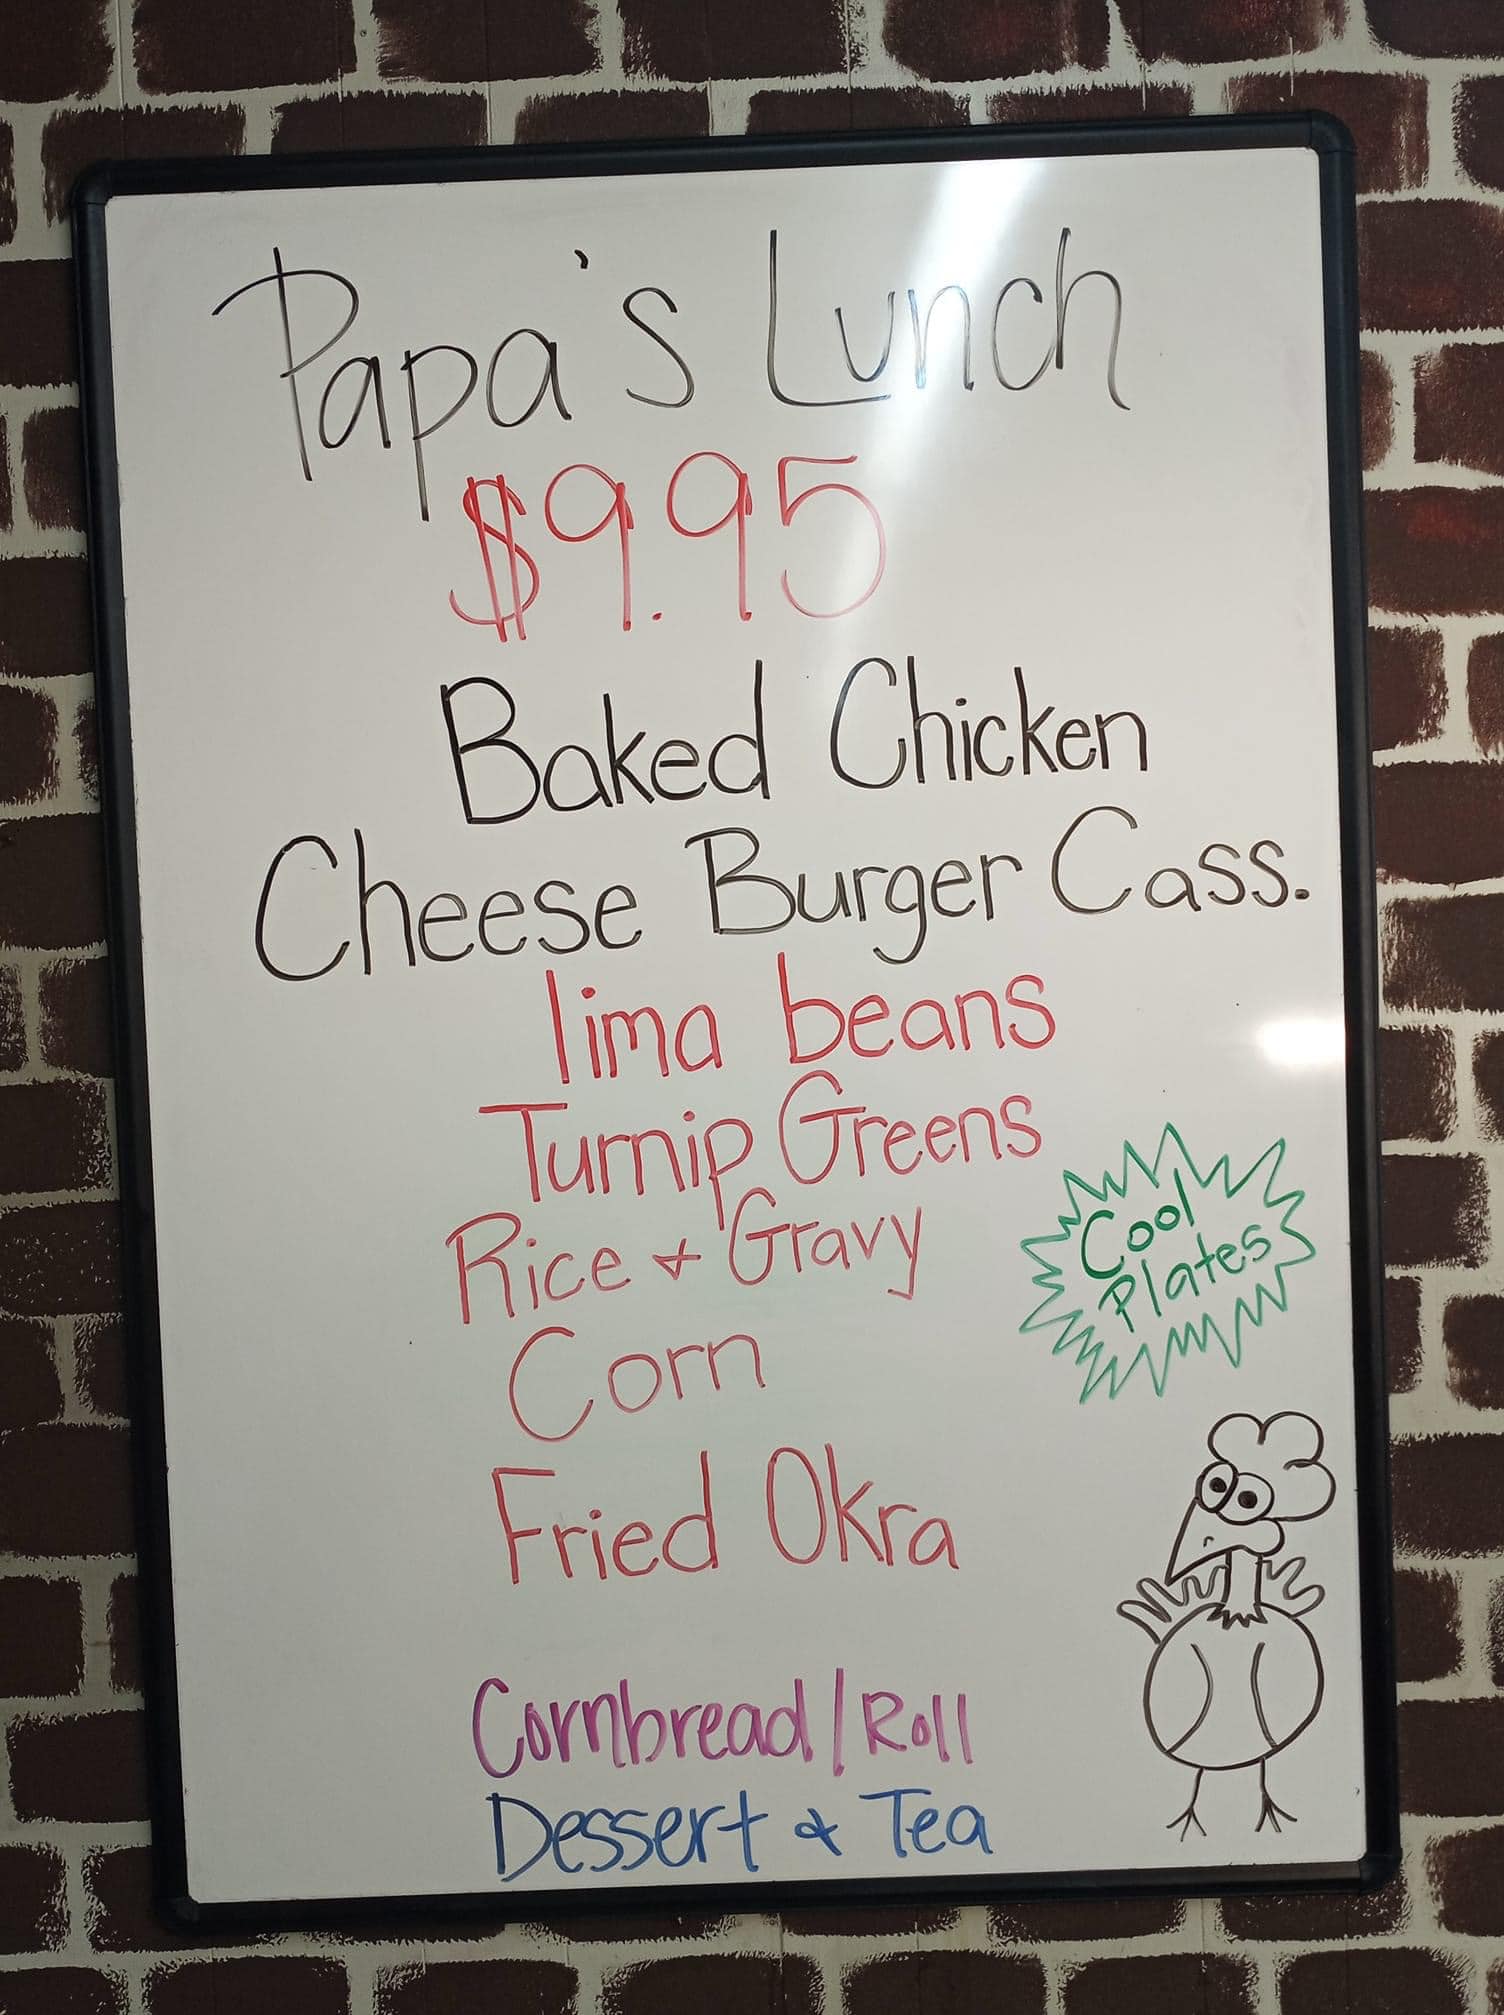 Papa's Lunch
$9.95
Baked Chicken
Cheese Burger Cass.
lima beans
Turnip Greens
Rice + Gravy
Corn
Fried Okra
Cool
Plates
Cornbread/Roll
Dessert & Tea